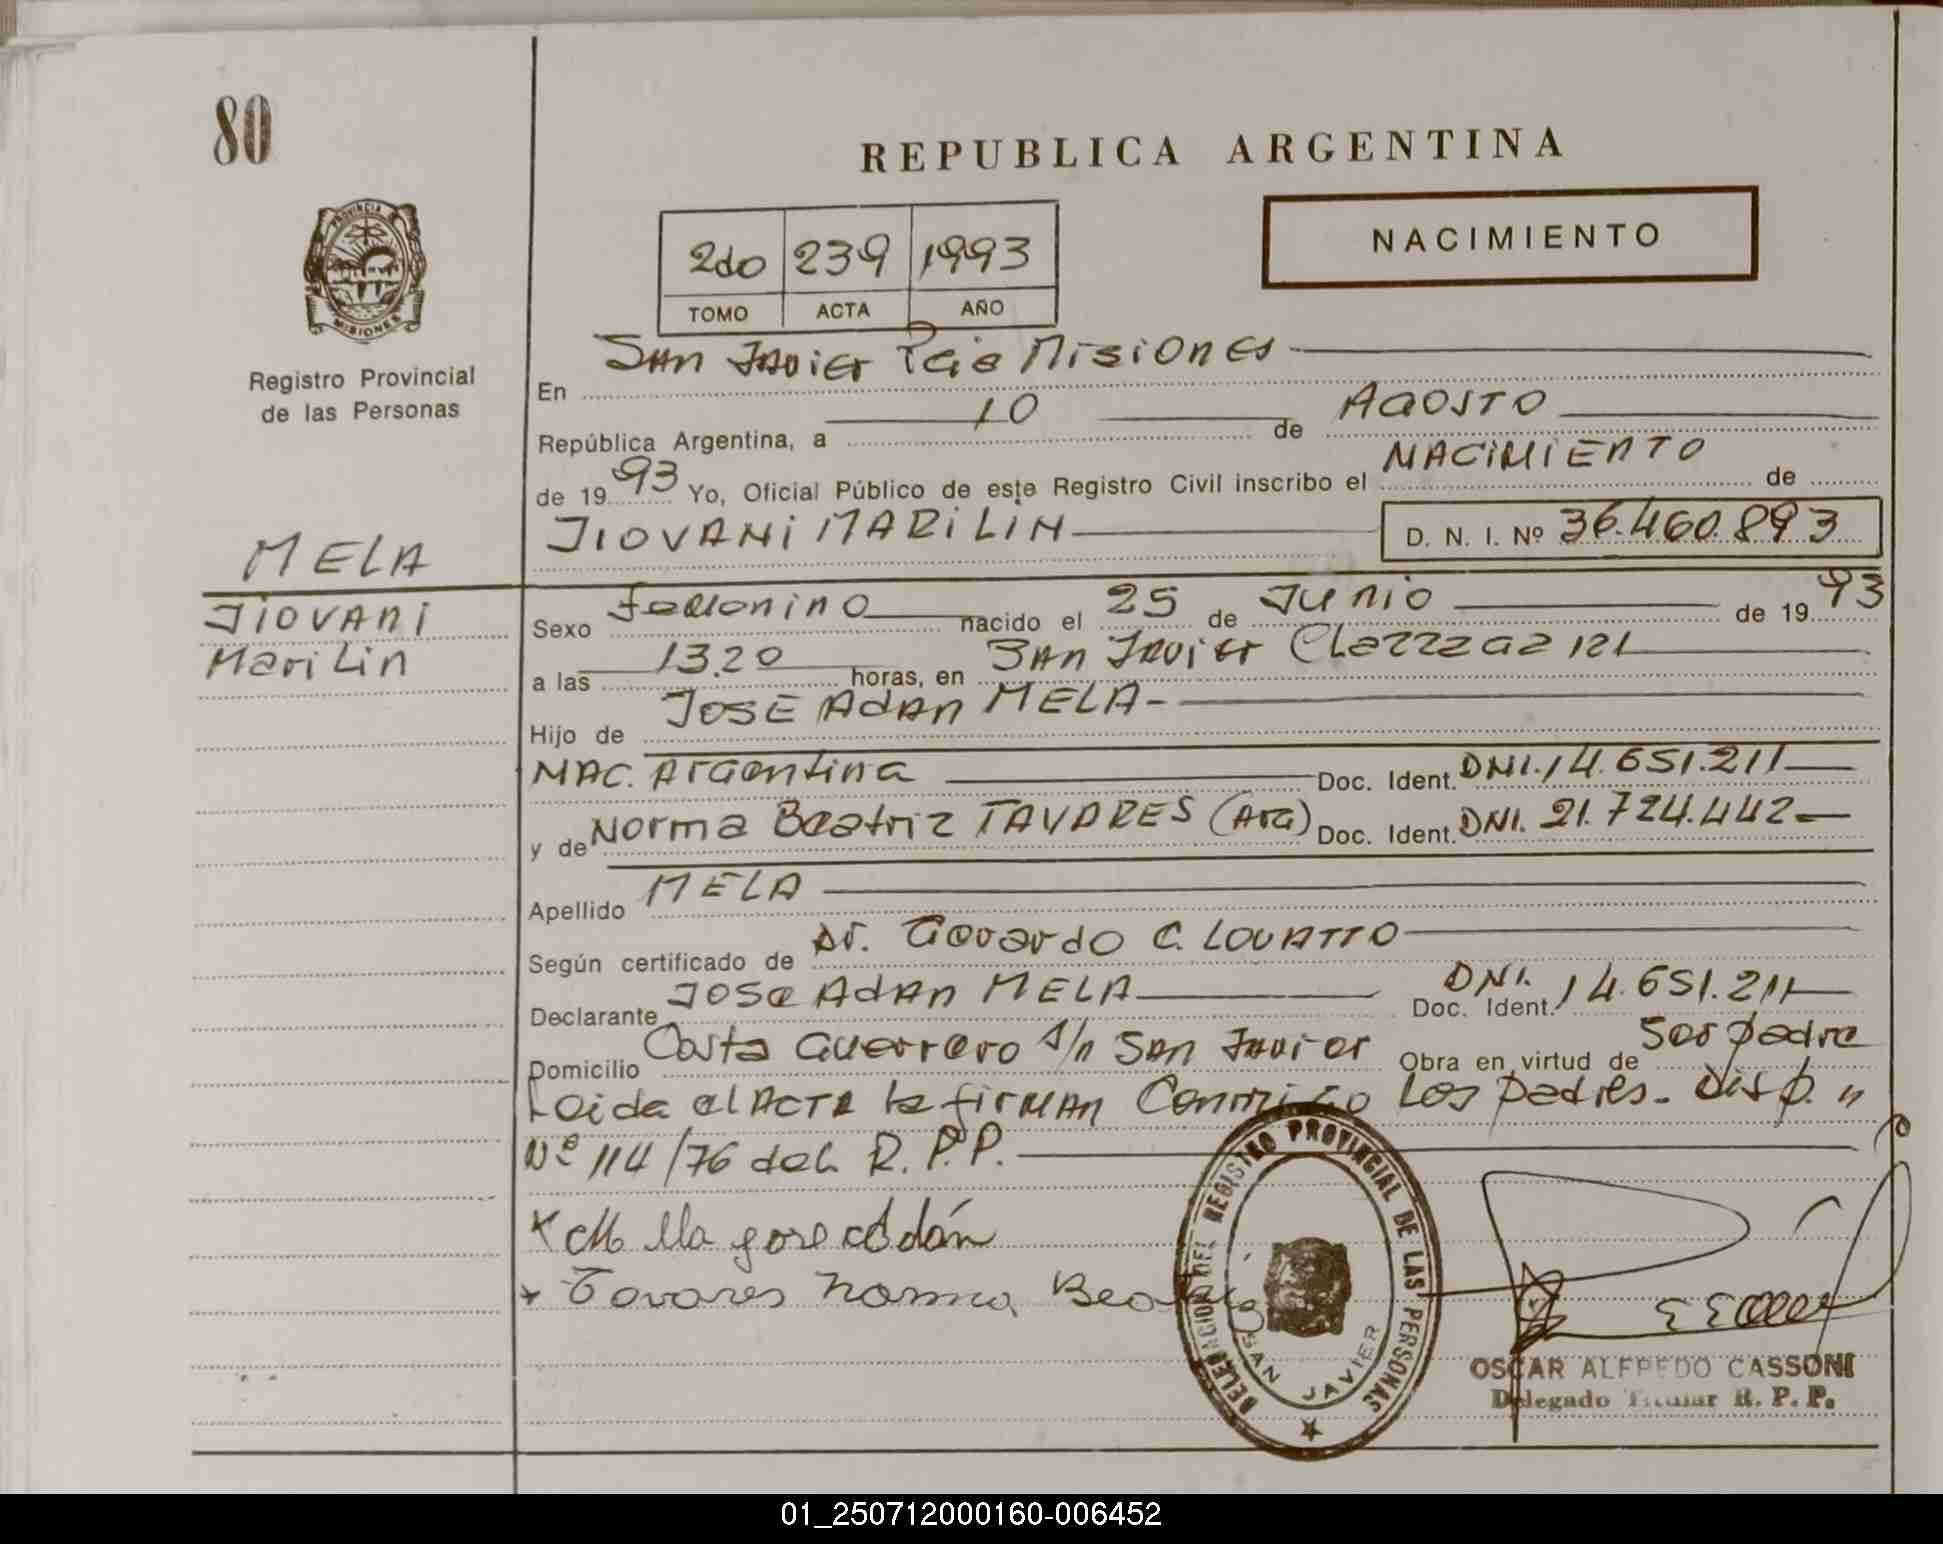 80
REPUBLICA ARGENTINA
NACIMIENTO
2do 239 1993
TOMO ACTA AÑO
PROVINCIA DE MISIONES
Registro Provincial
de las Personas
En San Javier Pcia Misiones
República Argentina, a 10 de AGOSTO
de 1993 Yo, Oficial Público de este Registro Civil inscribo el NACIMIENTO de
JIOVANI MARILIN D. N. I. Nº 36.460.893
MELA
JIOVANI
MariLin
Sexo Femenino nacido el 25 de Junio de 1993
a las 13.20 horas, en San Javier
Hijo de JOSE AdAn MELA-
NAC. Argentina Doc. Ident. DNI. 14.651.211
y de Norma Beatriz TAVARES (Arg) Doc. Ident. DNI. 21.724.442
Apellido MELA
Según certificado de Dr. Gerardo C. LOVATTO
Declarante Jose AdAn MELA Doc. Ident. DNI. 14.651.211
Domicilio Costa Guerrero s/n San Javier Obra en virtud de Ser padre
Leida el ACTA la firMAn Conmigo Los padres. Disp. "
Nº 114/76 del R.P.P.
x Mela jose Adán
x Tavares Norma Beatriz
DELEGACION DEL REGISTRO PROVINCIAL DE LAS PERSONAS
SAN JAVIER
OSCAR ALFREDO CASSONI
Delegado Titular R. P. P.
01_250712000160-006452